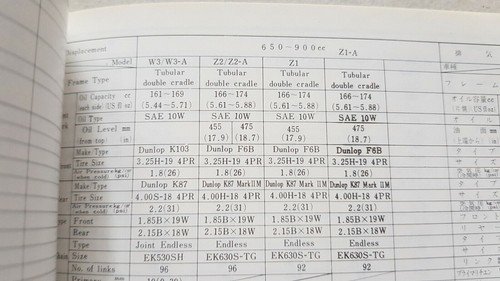 Displacement 650-900cc 機 気
Model W3/W3-A Z2/Z2-A Z1 Z1-A 車種
Frame Type Tubular double cradle Tubular double cradle Tubular double cradle Tubular double cradle フレーム
Oil Capacity cc (each side) (US fl oz) 161~169 (5.44~5.71) 166~174 (5.61~5.88) 166~174 (5.61~5.88) 166~174 (5.61~5.88) オイル容量
Oil Type SAE 10W SAE 10W SAE 10W SAE 10W オイ
Oil Level mm (from top) (in) 455 (17.9) 475 (18.7) 455 (17.9) 475 (18.7) 油面
Make Type Dunlop K103 Dunlop F6B Dunlop F6B Dunlop F6B
Tire Size 3.25H-19 4PR 3.25H-19 4PR 3.25H-19 4PR 3.25H-19 4PR サイ
Air Pressure (when cold) (psi) 1.8(26) 1.8(26) 1.8(26) 1.8(26)
Make Type Dunlop K87 Dunlop K87 Mark II M Dunlop K87 Mark II M Dunlop K87 Mark II M
Tire Size 4.00S-18 4PR 4.00H-18 4PR 4.00H-18 4PR 4.00H-18 4PR サイ
Air Pressure (when cold) (psi) 2.2(31) 2.2(31) 2.2(31) 2.2(31)
Front 1.85B×19W 1.85B×19W 1.85B×19W 1.85B×19W フロン
Rear 2.15B×18W 2.15B×18W 2.15B×18W 2.15B×18W リヤ
Type Joint Endless Endless Endless Endless タイ
Size EK530SH EK630S-TG EK630S-TG EK630S-TG サイ
No. of links 96 96 92 92 リンク
Primary プライマリ